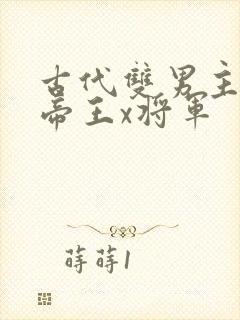 古代雙男主
帝王x將軍
蒔蒔1